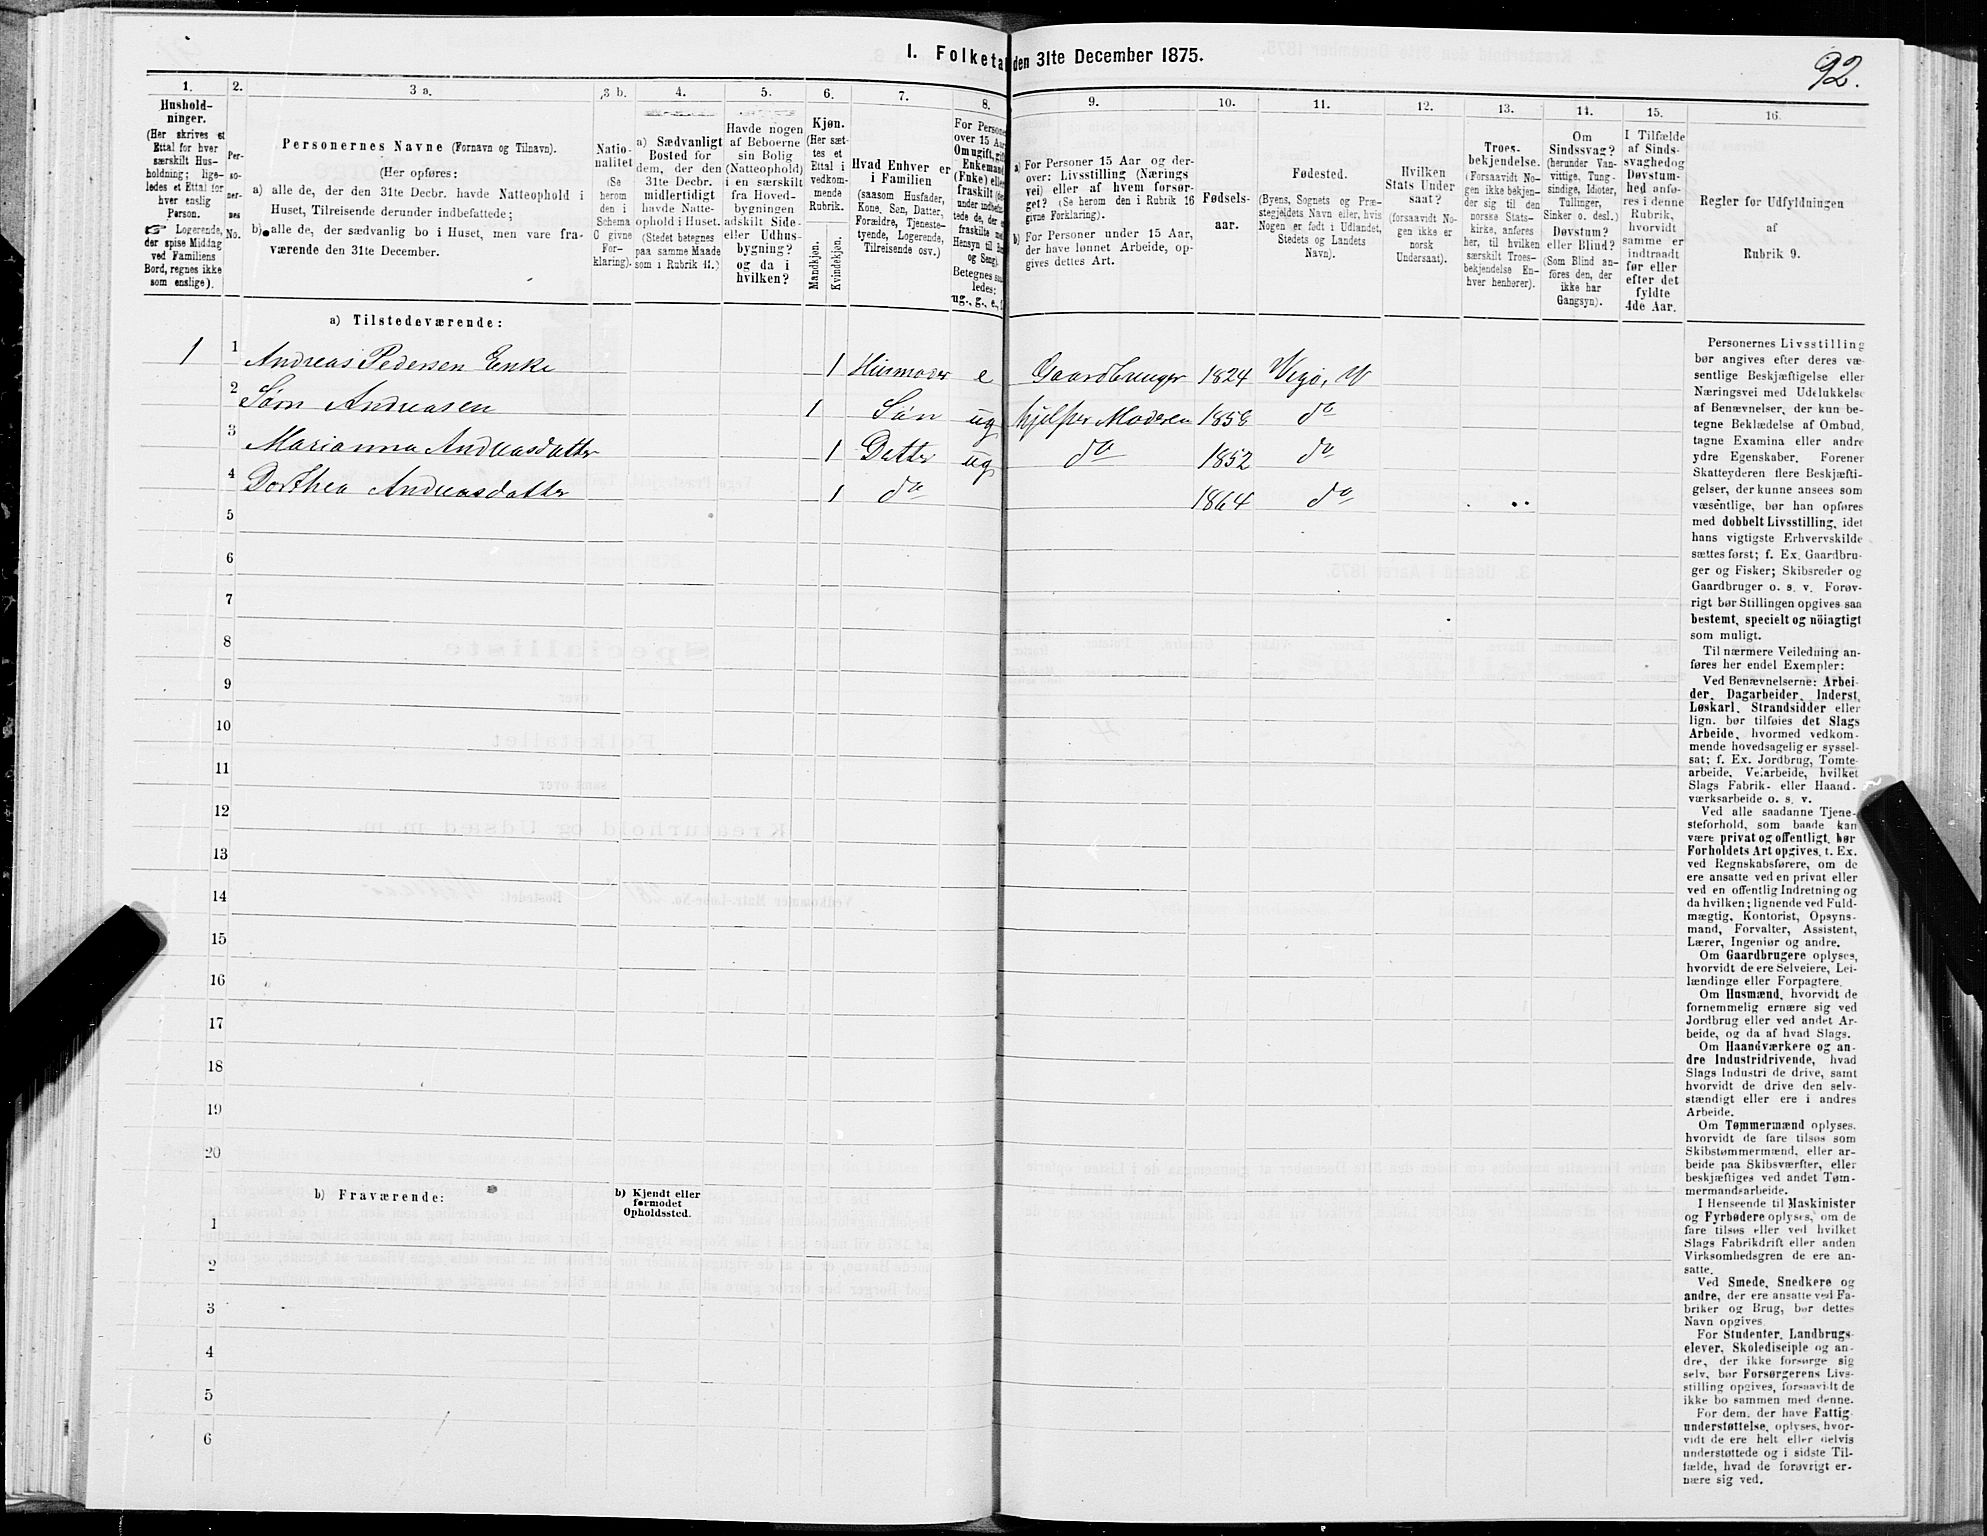 I. Folketal den 31te December 1875.
92.
1.
Hushold-
ninger.
(Her skrives et
Ettal for hver
særskilt Hus-
holdning; lige-
ledes et Ettal for
hver enslig
Person.
☞ Logerende,
der spise Middag
ved Familiens
Bord, regnes ikke
som enslige).
2.
Per-
so-
ner-
nes
No.
3 a.
Personernes Navne (Fornavn og Tilnavn).
(Her opføres:
a) alle de, der den 31te Decbr. havde Natteophold i
Huset, Tilreisende derunder indbefattede;
b) alle de, der sædvanlig bo i Huset, men vare fra-
værende den 31te December.
3 b.
Natio-
nalitet
(Se
herom
den i
Schema
C givne
For-
klaring).
4.
a) Sædvanligt
Bosted for
dem, der den
31te Decbr.
midlertidigt
havde Natte-
ophold i Huset.
(Stedet betegnes
paa samme Maade
som i Rubrik 11.)
5.
Havde nogen
af Beboerne
sin Bolig
(Natteophold)
i en særskilt
fra Hoved-
bygningen
adskilt Side-
eller Udhus-
bygning?
og da i
hvilken?
6.
Kjøn.
(Her sæt-
tes et
Ettal i
vedkom-
mende
Rubrik.
Mandkjøn.
Kvindekjøn.
7.
Hvad Enhver er
i Familien
(saasom Husfader,
Kone, Søn, Datter,
Forældre, Tjeneste-
tyende, Logerende,
Tilreisende osv.)
8.
For Persone
over 15 Aar
Om ugift, gift
Enkemand
(Enke) eller
fraskilt
Betegnes saa
ledes:
ug., g., e.,
9.
a) For Personer 15 Aar og der-
over: Livsstilling (Nærings
vei) eller af hvem forsør-
get? (Se herom den i Rubrik 16
givne Forklaring).
b) For Personer under 15 Aar,
der have lønnet Arbeide, op-
gives dettes Art.
10.
Fødsels-
aar.
11.
Fødested.
(Byens, Sognets og Præ-
stegjeldets Navn eller, hvis
Nogen er født i Udlandet,
Stedets og Landets
Navn).
12.
Hvilken
Stats Under
saat?
(forsaavidt No-
gen ikke er
norsk
Undersaat).
13.
Troes-
bekjendelse.
(Forsaavidt No-
gen ikke bekjen-
der sig til den
norske Stats-
kirke, anføres
her, til hvilken
særskilt Troes-
bekjendelse En-
hver henhører).
14.
Om
Sindssvag?
(herunder Van-
vittige, Tung-
sindige, Idioter,
Tullinger,
Sinker o. desl.)
Døvstum?
eller Blind?
(Som Blind an-
føres den, der
ikke har
Gangsyn).
15.
I Tilfælde
af Sinds-
svaghed og
Døvstum-
hed anfø-
res i denne
Rubrik,
hvorvidt
samme er
indtraadt
før eller
efter det
fyldte
4de Aar.
16.
Regler for Udfyldningen
af
Rubrik 9.
a) Tilstedeværende:
1 1 Andreas Pedersen Enke 1 Husmoder e Gaardbruger 1824 Vegø, N
2 Sørn Andreasen 1 Søn ug hjelper Moderen 1858 do
3 Marianna Andreasdatter 1 Datter ug do 1852 do
4 Dorthea Andreasdatter 1 do 1864 do
5
6
7
8
9
10
11
12
13
14
15
16
17
18
19
20
b) Fraværende:
b) Kjendt eller
formodet
Opholdssted.
1
2
3
4
5
6
Personernes Livsstilling
bør angives efter deres væ-
sentlige Beskjæftigelse eller
Næringsvei med Udelukkelse
af Benævnelser, der kun be-
tegne Beklædelse af Ombud,
tagne Examina eller andre
ydre Egenskaber. Forener
Skatteyderen flere Beskjæfti-
gelser, der kunne ansees som
væsentlige, bør han opføres
med dobbelt Livsstilling, idet
hans vigtigste Erhvervskilde
sættes først; f. Ex. Gaardbru-
ger og Fisker; Skibsreder og
Gaardbruger o. s. v. Forøv-
rigt bør Stillingen opgives saa
bestemt, specielt og nöiagtigt
som muligt.
Til nærmere Veiledning an-
føres her endel Exempler:
Ved Benævnelserne: Arbei-
der, Dagarbeider, Inderst,
Løskarl, Strandsidder eller
lign. bør tilføies det Slags
Arbeide, hvormed vedkom-
mende hovedsagelig er syssel-
sat; f. Ex. Jordbrug, Tomte-
arbeide, Veiarbeide, hvilket
Slags Fabrik- eller Haand-
værksarbeide o. s. v.
Ved alle saadanne Tjene-
steforhold, som baade kan
være privat og offentligt, bør
Forholdets Art opgives, f. Ex.
ved Regnskabsførere, om de
ere ansatte ved en privat eller
ved en offentlig Indretning og
da hvilken; lignende ved Fuld-
mægtig, Kontorist, Opsyns-
mand, Forvalter, Assistent,
Lærer, Ingeniør og andre.
Om Gaardbrugere oplyses,
hvorvidt de ere Selveiere, Lei-
lændinge eller Forpagtere.
Om Husmænd, hvorvidt de
fornemmelig ernære sig ved
Jordbrug eller ved andet Ar-
beide, og da af hvad Slags.
Om Haandværkere og an-
dre Industridrivende, hvad
Slags Industri de drive, samt
hvorvidt de drive den selv-
stændigt eller ere i andres
Arbeide.
Om Tømmermænd oplyses,
hvorvidt de fare tilsøs som
Skibstømmermænd, eller ar-
beide paa Skibsværfter, eller
beskjæftiges ved andet Tøm-
mermandsarbeide.
I Henseende til Maskinister
og Fyrbødere oplyses, om de
fare tilsøs eller ved hvilket
Slags Fabrikdrift eller anden
Virksomhedsgren de ere an-
satte.
Ved Smede, Snedkere og
andre, der ere ansatte ved Fa-
briker og Brug, bør dettes
Navn opgives.
For Studenter, Landbrugs-
elever, Skoledisciple og an-
dre, der ikke forsørge sig
selv, bør Forsørgerens Livs-
stilling opgives, forsaavidt de
ikke bo sammen med denne.
For dem, der have Fattig
understøttelse, oplyses, hvor-
vidt de ere helt eller delvis
understøttede og i sidste Til-
fælde, hvad de forøvrigt er-
nære sig ved.